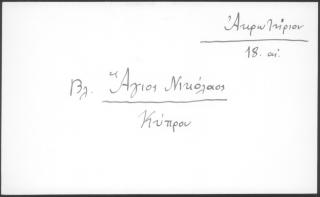 Ἀκρωτήριον
18. αἰ.
Βλ. Ἅγιος Νικόλαος
Κύπρου